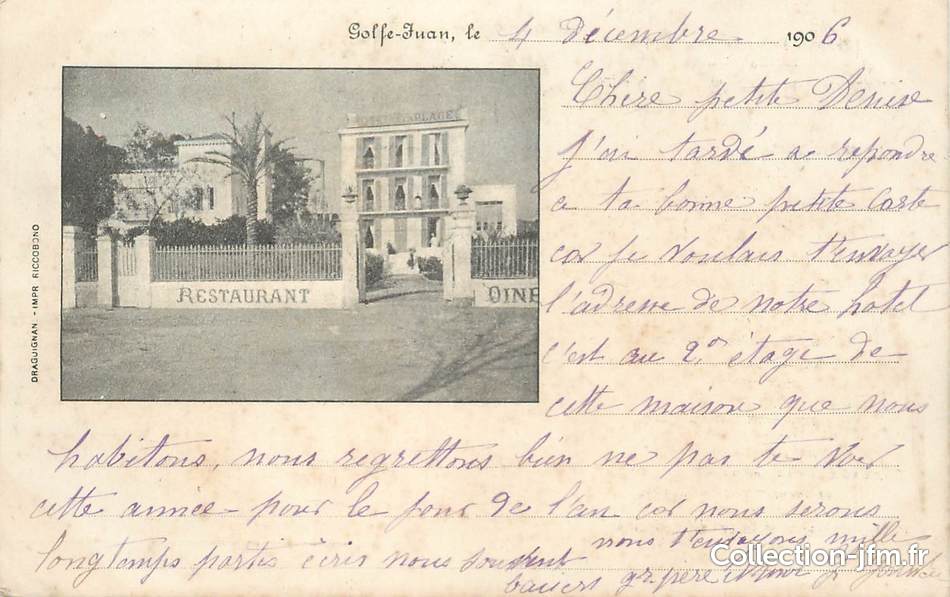 Golfe-Juan, le 4 décembre 1906
PLAGE
RESTAURANT
DINE
DRAGUIGNAN - IMPR RICCOBONO
Chère petite Denise
J'ai tardé a repondre
a ta bonne petite Carte
car je voulais t'envoyer
l'adresse de notre hotel
c'est au 2º étage de
cette maison que nous
habitons, nous regrettons bien ne pas te voir
cette année - pour le jour de l'an car nous serons
longtemps partis écris nous souvent
nous t'envoyons mille
baisers gr père
Collection-jfm.fr